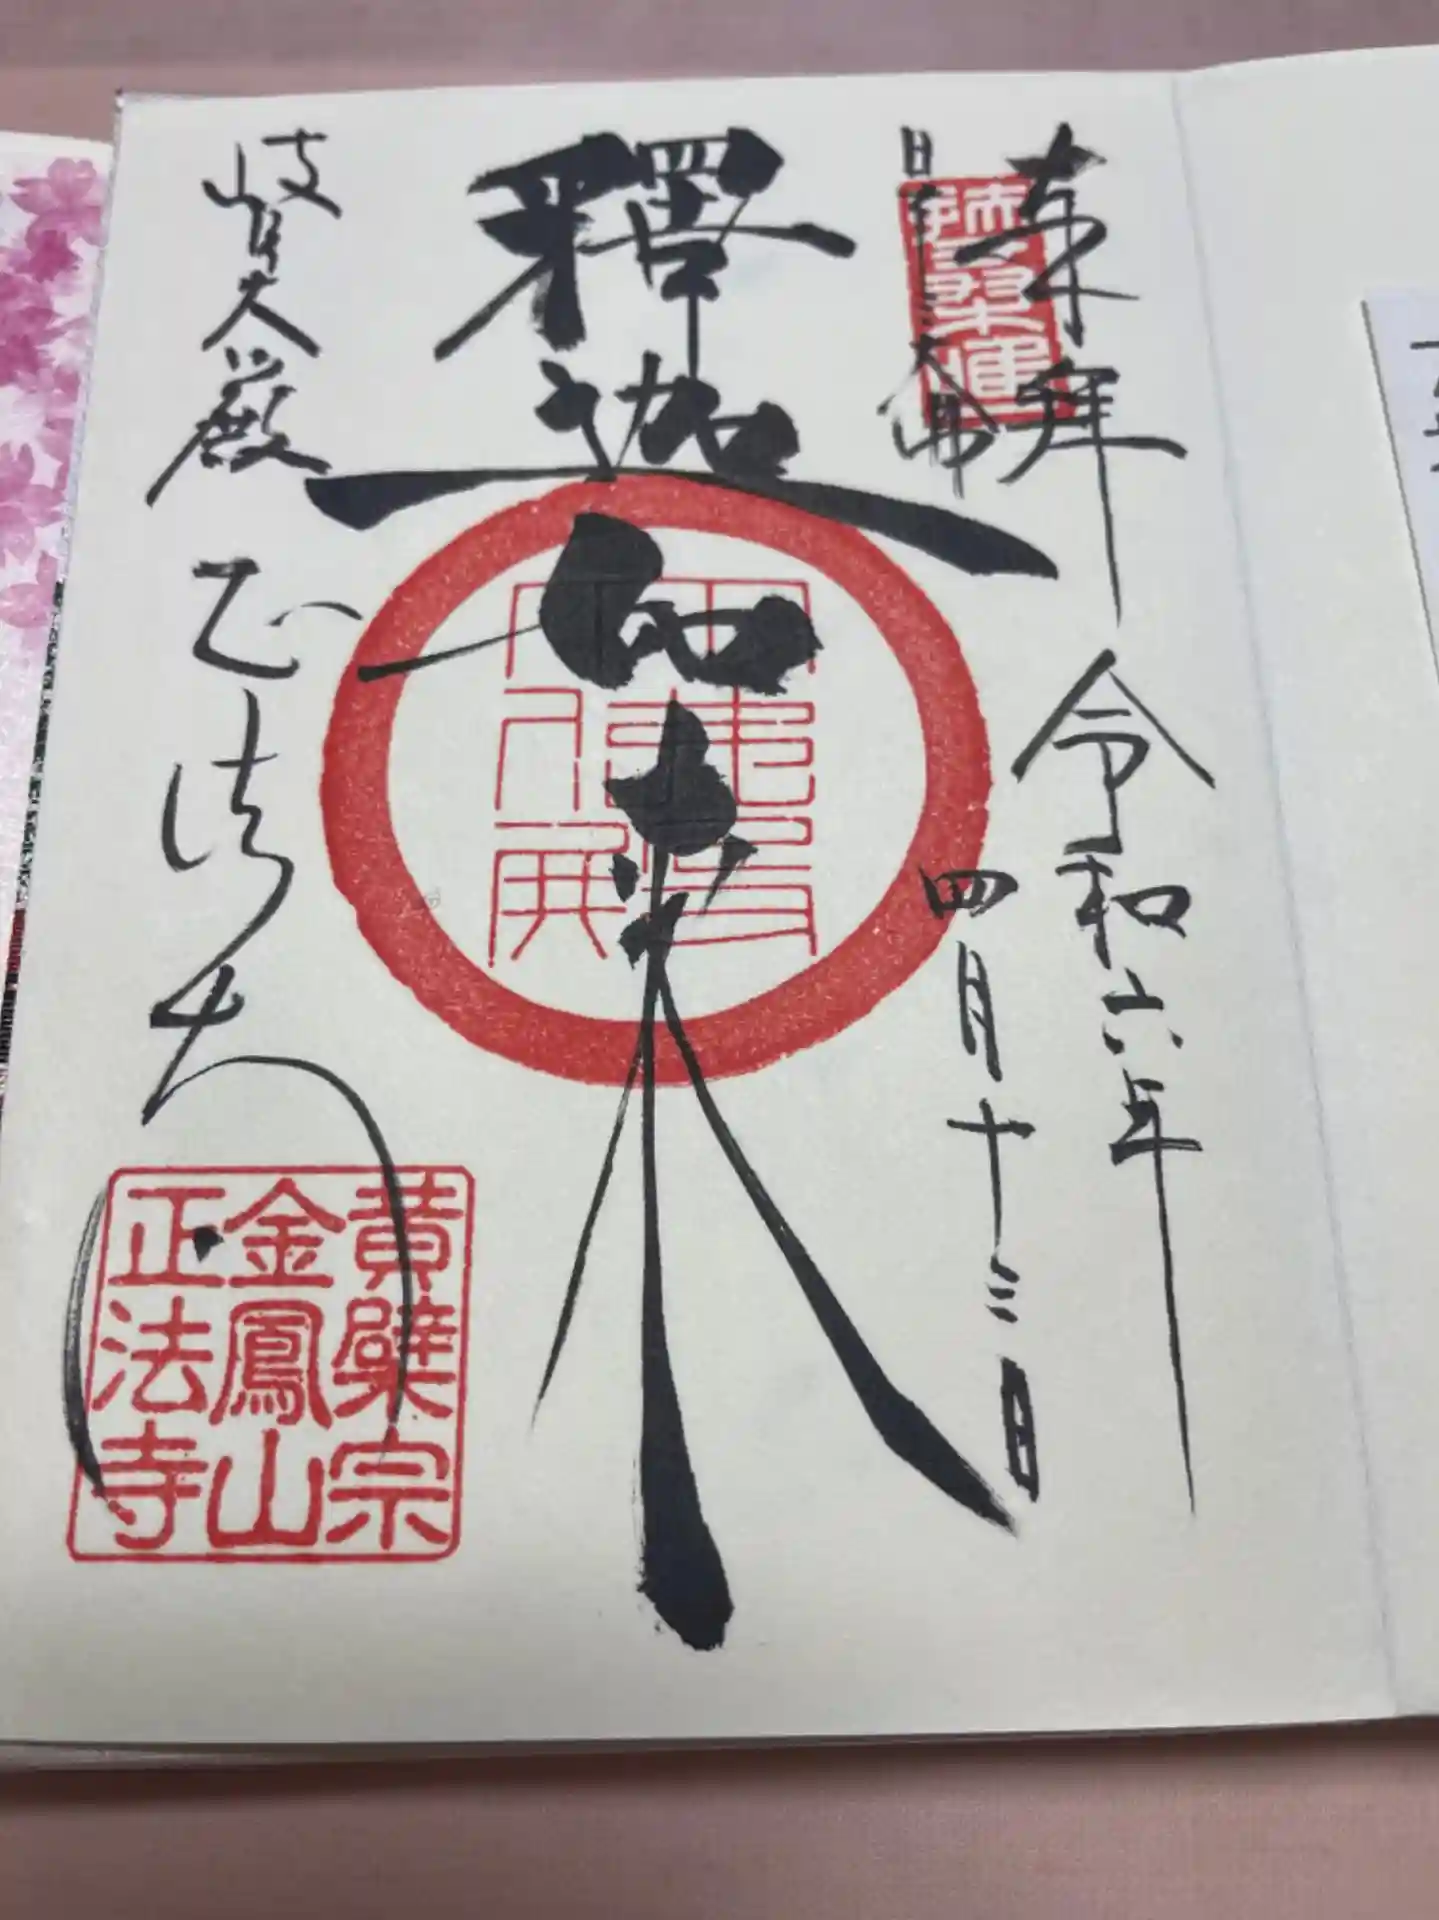 奉拝
日本三大佛
令和六年
四月十三日
釋迦如来
岐阜大殿
正法寺
黄檗宗
金鳳山
正法寺